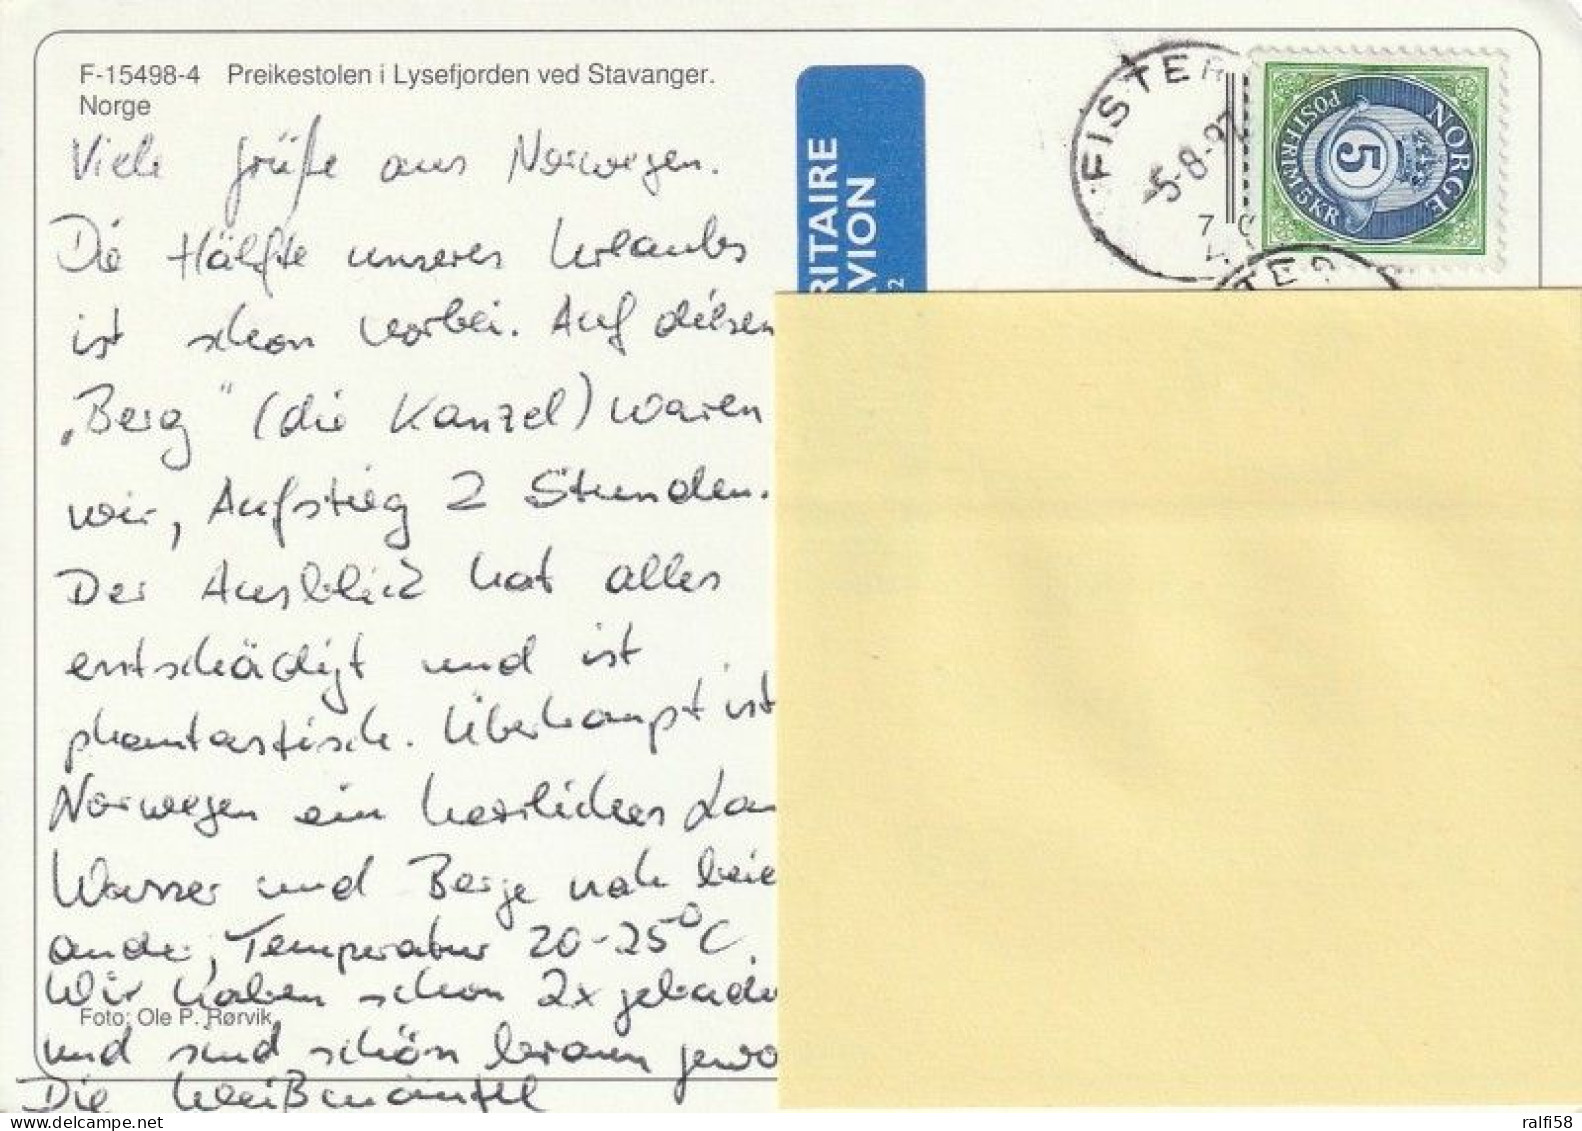 F-15498-4 Preikestolen i Lysefjorden ved Stavanger.
Norge
Viele Grüße aus Norwegen.
Die Hälfte unseres Urlaubs
ist schon vorbei. Auf diesen
„Berg" (die Kanzel) waren
wir, Aufstieg 2 Stunden.
Der Ausblick hat alles
entschädigt und ist
phantastisch. Überhaupt ist
Norwegen ein herrliches Lan
Wasser und Berge nah beie
ander, Temperatur 20-25°C.
Wir haben schon 2x gebade
Foto: Ole P. Rørvik
und sind schön braun gewo
Die Weißmäntel
RITAIRE
AVION
2
FISTER
5-8-97
NORGE
POSTFRIM 5 KR
5
ralfi58